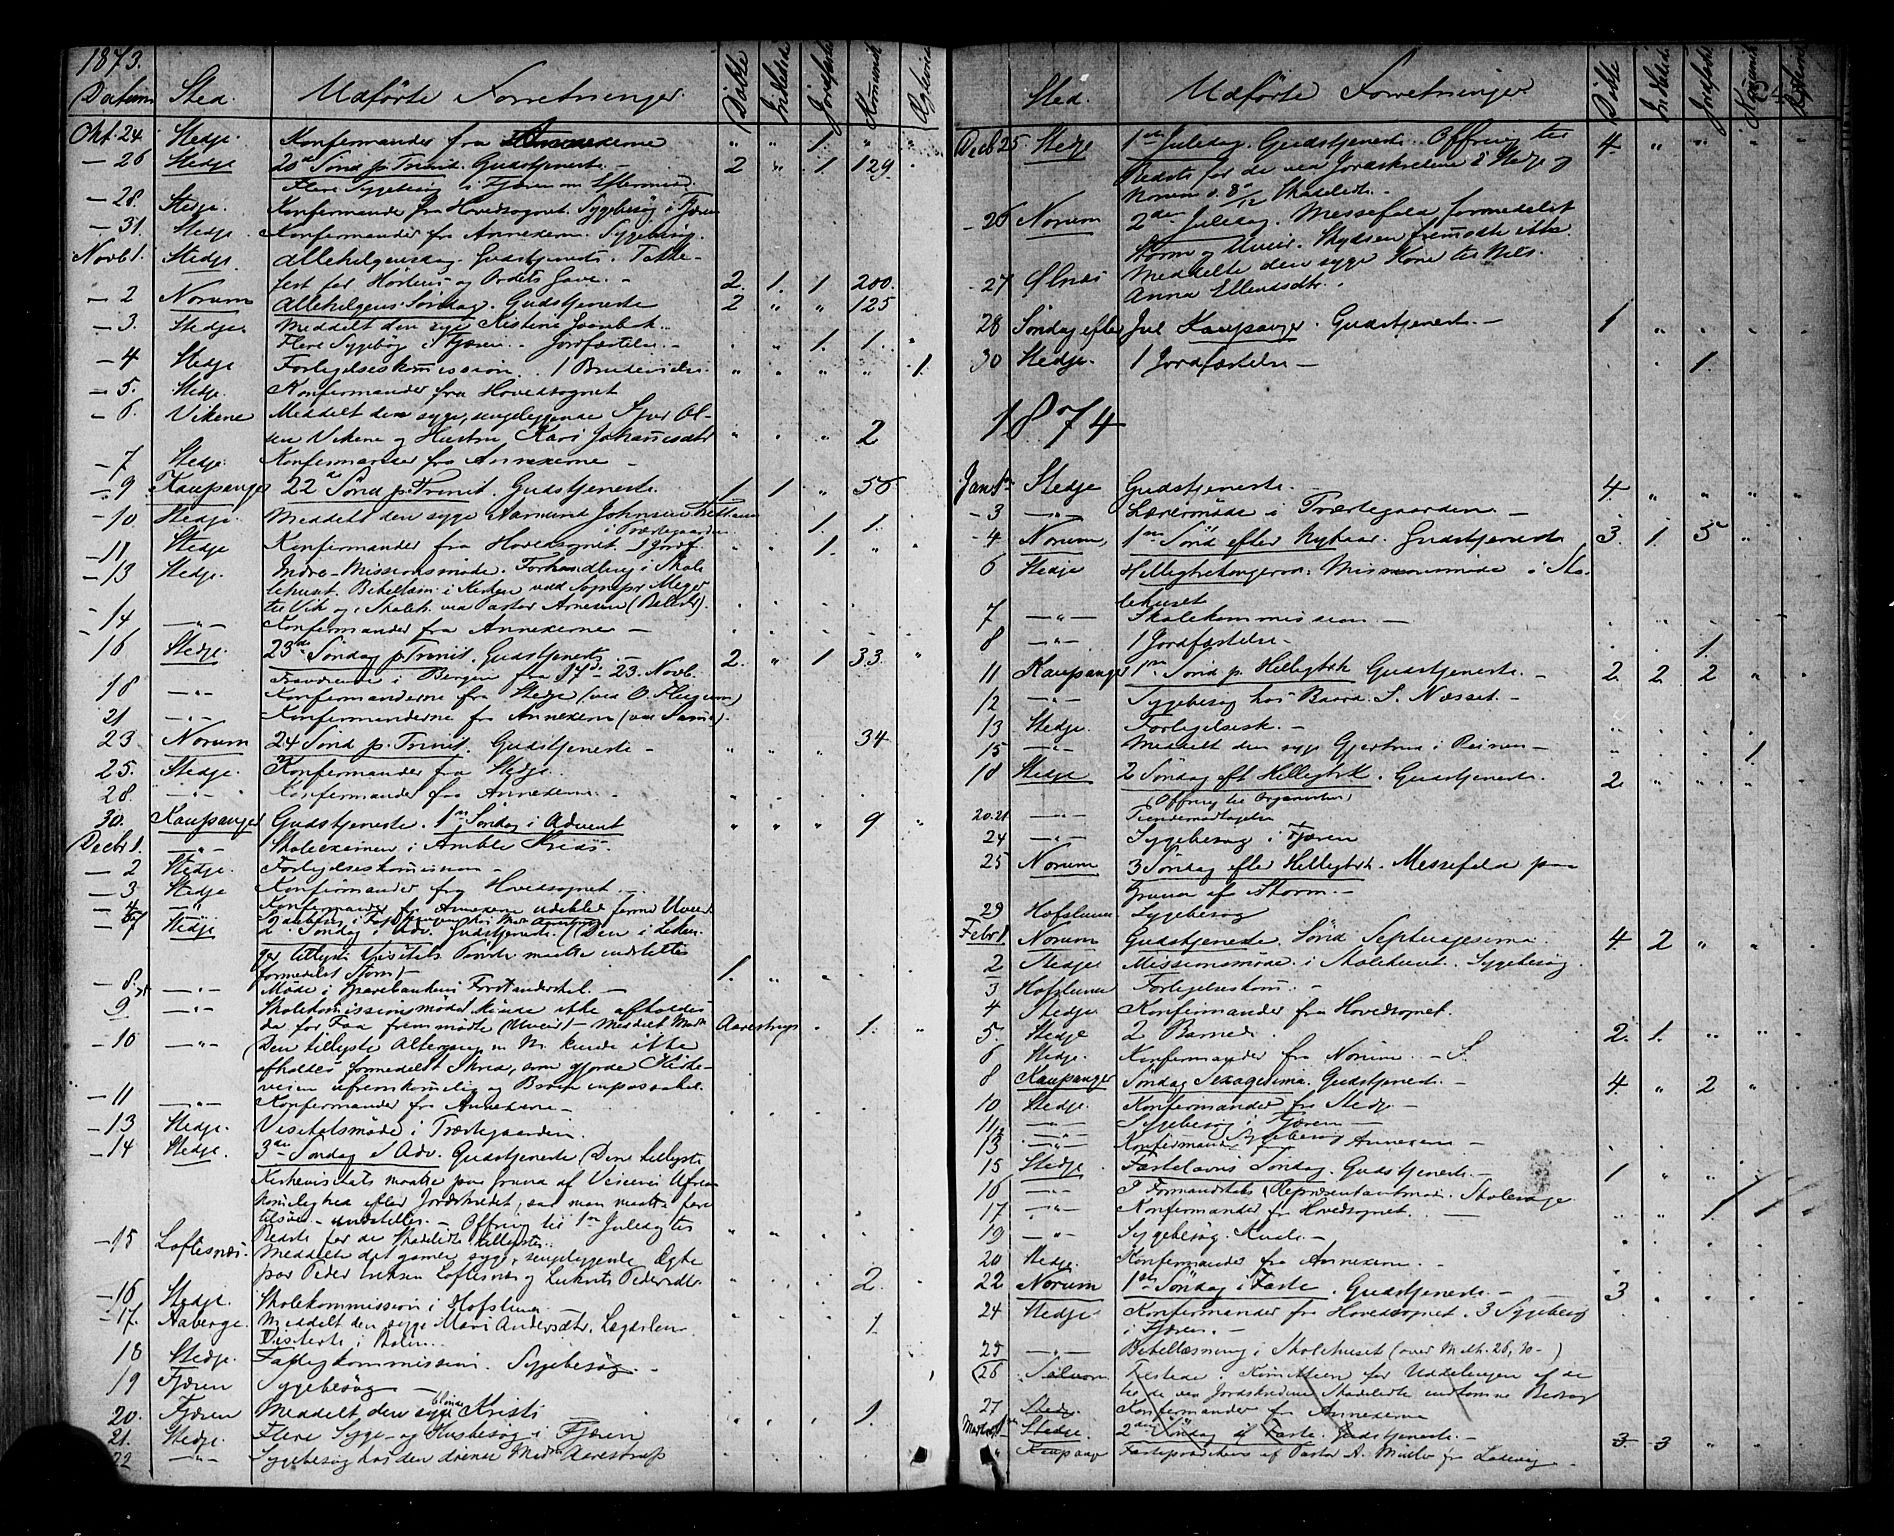 1873.
Datum Sted. Udförte Forretninger. Döbte Indledte Jordfæst. Kommunik. Ægteviede
Okt. 24 Stedje. Konfermander fra Annexerne " " 1. " "
— 26 Stedje 20de Sönd. p. Trinit. Gudstjeneste. 2 " 1 129.
Flere Sygebesög i Fjæren om Eftermid.
— 28. Stedje. Konfermander fra Hovedsognet. Sygebesög i Fjæren
— 31. Stedje. Konfermander fra Annexerne. Sygebesög.
Novb 1. Stedje. Allehelgensdag. Gudstjeneste. Takke-
fest for Höstens og Ordets Gave. — 2. 1. 1 280.
— 2 Norum Allehelgens Söndag. Gudstjeneste 2 " " 125
— 3. Stedje. Meddelt den syge Kistine
Flere Sygebög i Fjæren. Jordfæstelse. " " 1. 1. "
— 4 Stedje Forligelseskommission. 1 Brudevielse. " " " " 1.
— 5. Stedje. Konfermander fra Hovedsognet
— 6. Vikene Meddelt den syge, sengeliggende Sjur Ol-
sen Vikene og Hustru Kari Johannesdtr " " " 2
— 7 Stedje. Konfermander fra Annexerne —
— 9 Kaupanger 22de Sönd p. Trinit. Gudstjeneste. 1 1 " 56
— 10 Stedje. Meddelt den syge Aamund Johnsen
i Prestegaarden 1. 1.
— 11 Stedje Konfermander fra Hovedsognet. 1 Jordf. " " 1. " "
— 13 Stedje. Indre-Missionsmöde. Forhandling i Skole
lehuset. Bibellæsn. i Kirken ved Sognepr. Meyer
til Vik og i Skoleh. ved Pastor Arnesen (Balestr).
— 14 —"— Konfermander fra Annexerne —
16 Stedje. 23de Söndag p. Trinit. Gudstjeneste. — 2. " 1 33. "
Fraværende i Bergen fra 17de – 23. Novb.
18 —"— Konfermanderne fra Stedje (ved O. Flugum)
21 —"— Konfermanderne fra Annexerne (ved Samme).
23 Norum 24 Sönd p. Trinit. Gudstjeneste — " " " 34
25. Stedje. Konfermander fra Stedje.
28. —"— Konfermander fra Annexerne. —
30. Kaupanger Gudstjeneste. 1ste Söndag i Advent " " " 9 "
Decbr 1. —"— Skoleexamen i Amble Kreds —
— 2 Stedje. Forligelseskommission —
— 3 Stedje Konfermander fra Hovedsognet. —
— 4 " Konfermander fra Annexerne udeblev forme. Uveir
— 7 Stedje 2den Söndag i Adv. Gudstjeneste. (Den i Leikan-
ger tillyste Visitats Tjeneste maatte indstilles
formedelst Storm) — 1.
— 8. —"— Möde i Sparebankens Forstanderskab. —
9 —"— Skolekommissionsmödet kunde ikke afholdes
da for Faa fremmödte (Uveir) — Meddelt Mad. Aarestrup " 1. "
— 10 —"— Den tillyste Altergang i N. kunde ikke
afholdes formedelst Skred, som gjorde Kirke-
veien ufremkommelig og Broen inpassabel.
— 11 —"— Konfermander fra Annexerne —
— 13 Stedje. Visitatsmöde i Præstegaarden.
— 14 Stedje. 3die Söndag i Adv. Gudstjeneste (Den tillyste
Kirkevisitats maatte paa Grund af Veienes Ufrem-
kommelighed efter Jordskredet, saa man maatte fare
tilsöes — indstilles. — Offring til 1ste Juledag til
Bedste for de Skadelidte tillystes.
— 15 Loftesnæs. Meddelte det gamle syge, sengeliggende Ægte
par Peder Loftesnes og Pedersdtr. " " " 2. "
— 16 Stedje. Skolekommission i Hofslund
— 17. Aaberge. Meddelt den syge Mari Andersdtr. 1.
Visiterte i
18 Stedje. Fattigkommission. Sygebesög. —
19 Fjæren Sygebesög —
20. Fjæren Meddelt den syge blinde Kristi " " " 1.
21. Stedje. Flere Syge- og Husbesög i Fjæren
22 —"— Sygebesög hos den döende Mad. Aarestrup
Sted. Udförte Forretninger Döbte Indledte Jordfæst. Kommunik. Ægteviede
Decb 25 Stedje 1ste Juledag. Gudstjeneste. Offring til 4. " " " "
Bedste for de ved Jordskredene i Stedje og
Norum d. 8de/12 Skadelidte. —
— 26 Norum 2den Juledag. Messefald formedelst
Storm og Uveir. Skydsen fremmödte ikke
27 Ölnæs Meddelte den syge Kone
Anna Ellendsdtr.
28 Söndag efter Jul Kaupanger. Gudstjeneste. — 1 " " " "
30 Stedje. 1 Jordfæstelse — 1.
1874
Jan. 1ste Stedje Gudstjeneste. — 4. " " " "
— 3 —"— Lærermöde i Præstegaarden —
— 4 Norum. 1ste Sönd efter Nytaar. Gudstjeneste 3. 1. 5 "
6 Stedje Helligtrekongersd. Missionsmöde i Sko-
lehuset
7 —"— Skolekommission. —
8 —"— 1 Jordfæstelse — 1.
11 Kaupanger 1ste Sönd p. Helligtrk Gudstjeneste. — 2. 2. 2 "
12 —"— Sygebesög hos Baard S. Næsset. —
13 Stedje. Forligelsesk. —
15 —"— Meddelte den syge Gjertrud i — " " 1
18 Stedje 2 Söndag eft Helligtrk. Gudstjeneste. 2. " " "
(Offring til Organisten)
20.21 —"— Tiendemodtagelse
24 —"— Sygebesög i Fjæren
25 Norum 3 Söndag efter Helligtrk. Messefald paa
Grund af Storm. —
29 Hofslund Sygebesög
Febr 1 Norum Gudstjeneste. Sönd Septuagesima. 4. 2 " "
2 Stedje. Missionsmöde i Skolehuset. Sygebesög.
3 Hofslund Forligelseskom. —
4 Stedje. Konfermander fra Hovedsognet.
5. Stedje 2 Barned. 2. 1. " "
6 Stedje. Konfermander fra Norum. —
8 Kaupanger Söndag Sexagesima. Gudstjeneste. — 4. " 2 "
10 Stedje. Konfermander fra Stedje —
11/12 —"— Sygebesög i Fjæren —
13 —"— Konfermander Sygebesög Annexerne —
15 Stedje. Fastelavns Söndag. Gudstjeneste. — 1 " "
16 —"— Formandskabs (Repræsentantmöde. Skolesage
17 —"— Konfermander fr Hovedsognet. — " " 1
19 —"— Sygebesög. Kvale. —
20 Stedje. Konfermander fra Annexerne. —
22 Norum 1ste Söndag i Faste. Gudstjeneste. — 3
24 Stedje. Konfermander fra Hovedsognet. 3 Sygebesög
i Fjæren. —
25 —"— Bibellæsning i Skolehuset (over Math. 26, 30 —)
26 Komitteen for Uddelingen af de
til de ved Jordskredene Skadelidte indkomne Bidrag
27 Stedje Konfermander fr Annexerne
Marts 1 Stedje. 2den Söndag i Faste. Gudstjeneste. — 3 3 " "
Kaupanger Fasteprædiken af Pastor A. Müller fra Ladvig —